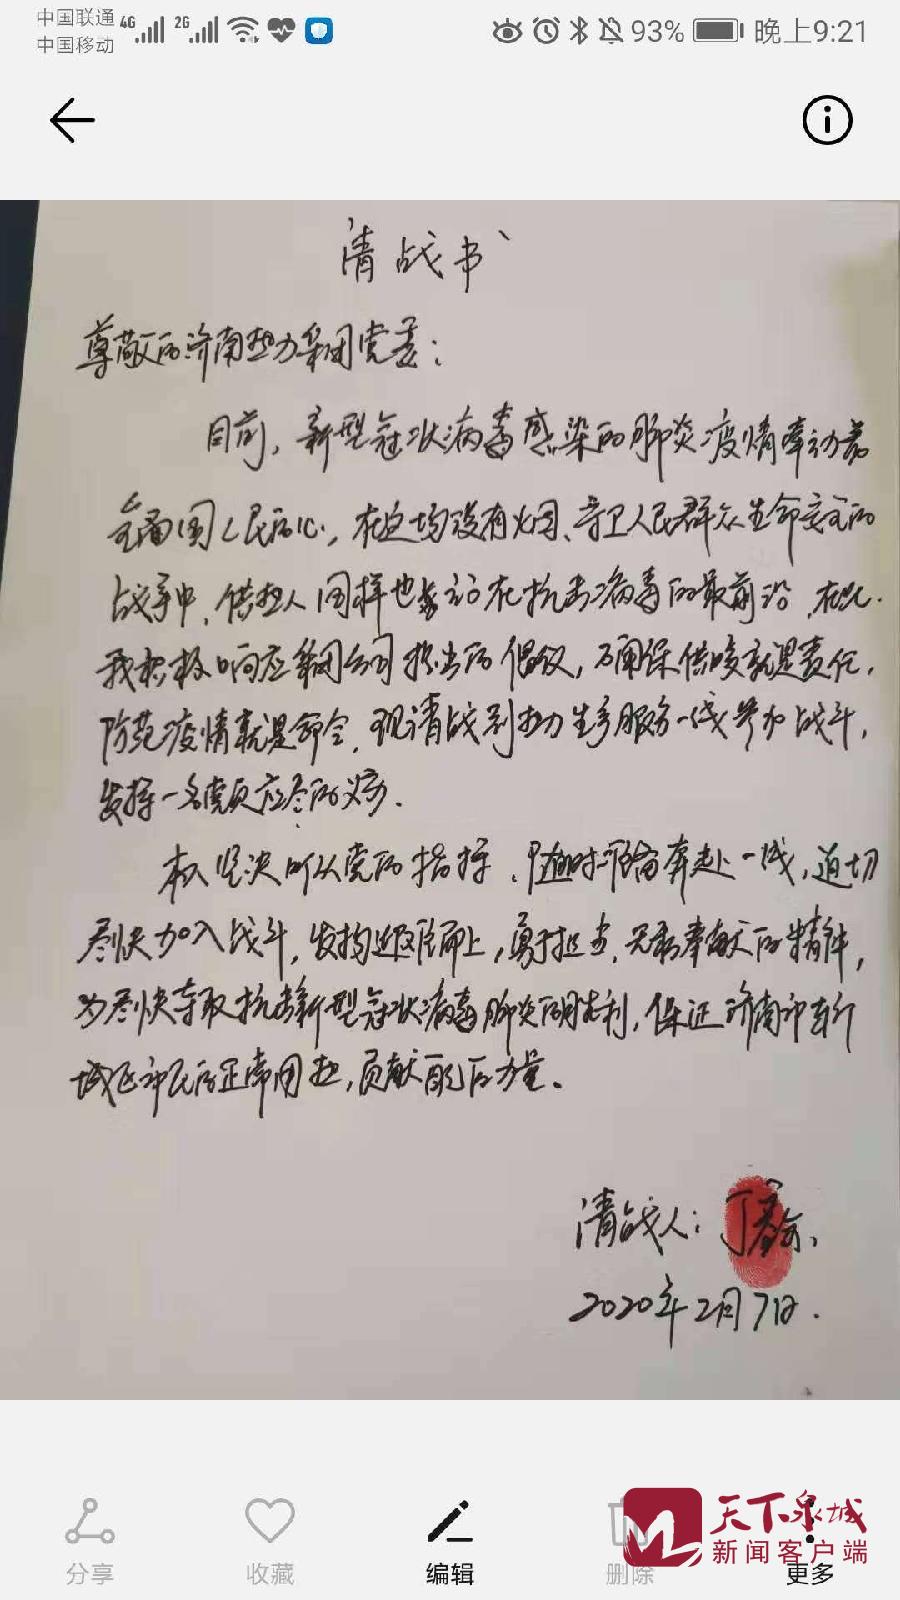 中国联通 4G 2G 93% 晚上9:21
中国移动
请战书
尊敬的济南热力集团党委：
目前，新型冠状病毒感染的肺炎疫情牵动着
全国人民的心，在这场没有火烟、守卫人民群众生命安全的
战争中，供热人同样也奋站在抗击病毒的最前沿，在此
我积极响应集团公司提出的倡议，确保供暖就是责任，
防范疫情就是命令，现请战到热力生产服务一线参加战斗，
发挥一名党员应尽的义务．
本人坚决听从党的指挥，随时准备奔赴一线，迫切
尽快加入战斗，发扬迎难而上，勇于担当，无私奉献的精神，
为尽快夺取抗击新型冠状病毒肺炎的胜利，保证济南市东部
城区市民的正常用热，贡献自己的力量。
请战人：丁
2020年2月7日．
分享 收藏 编辑 删除 更多
天下泉城
新闻客户端